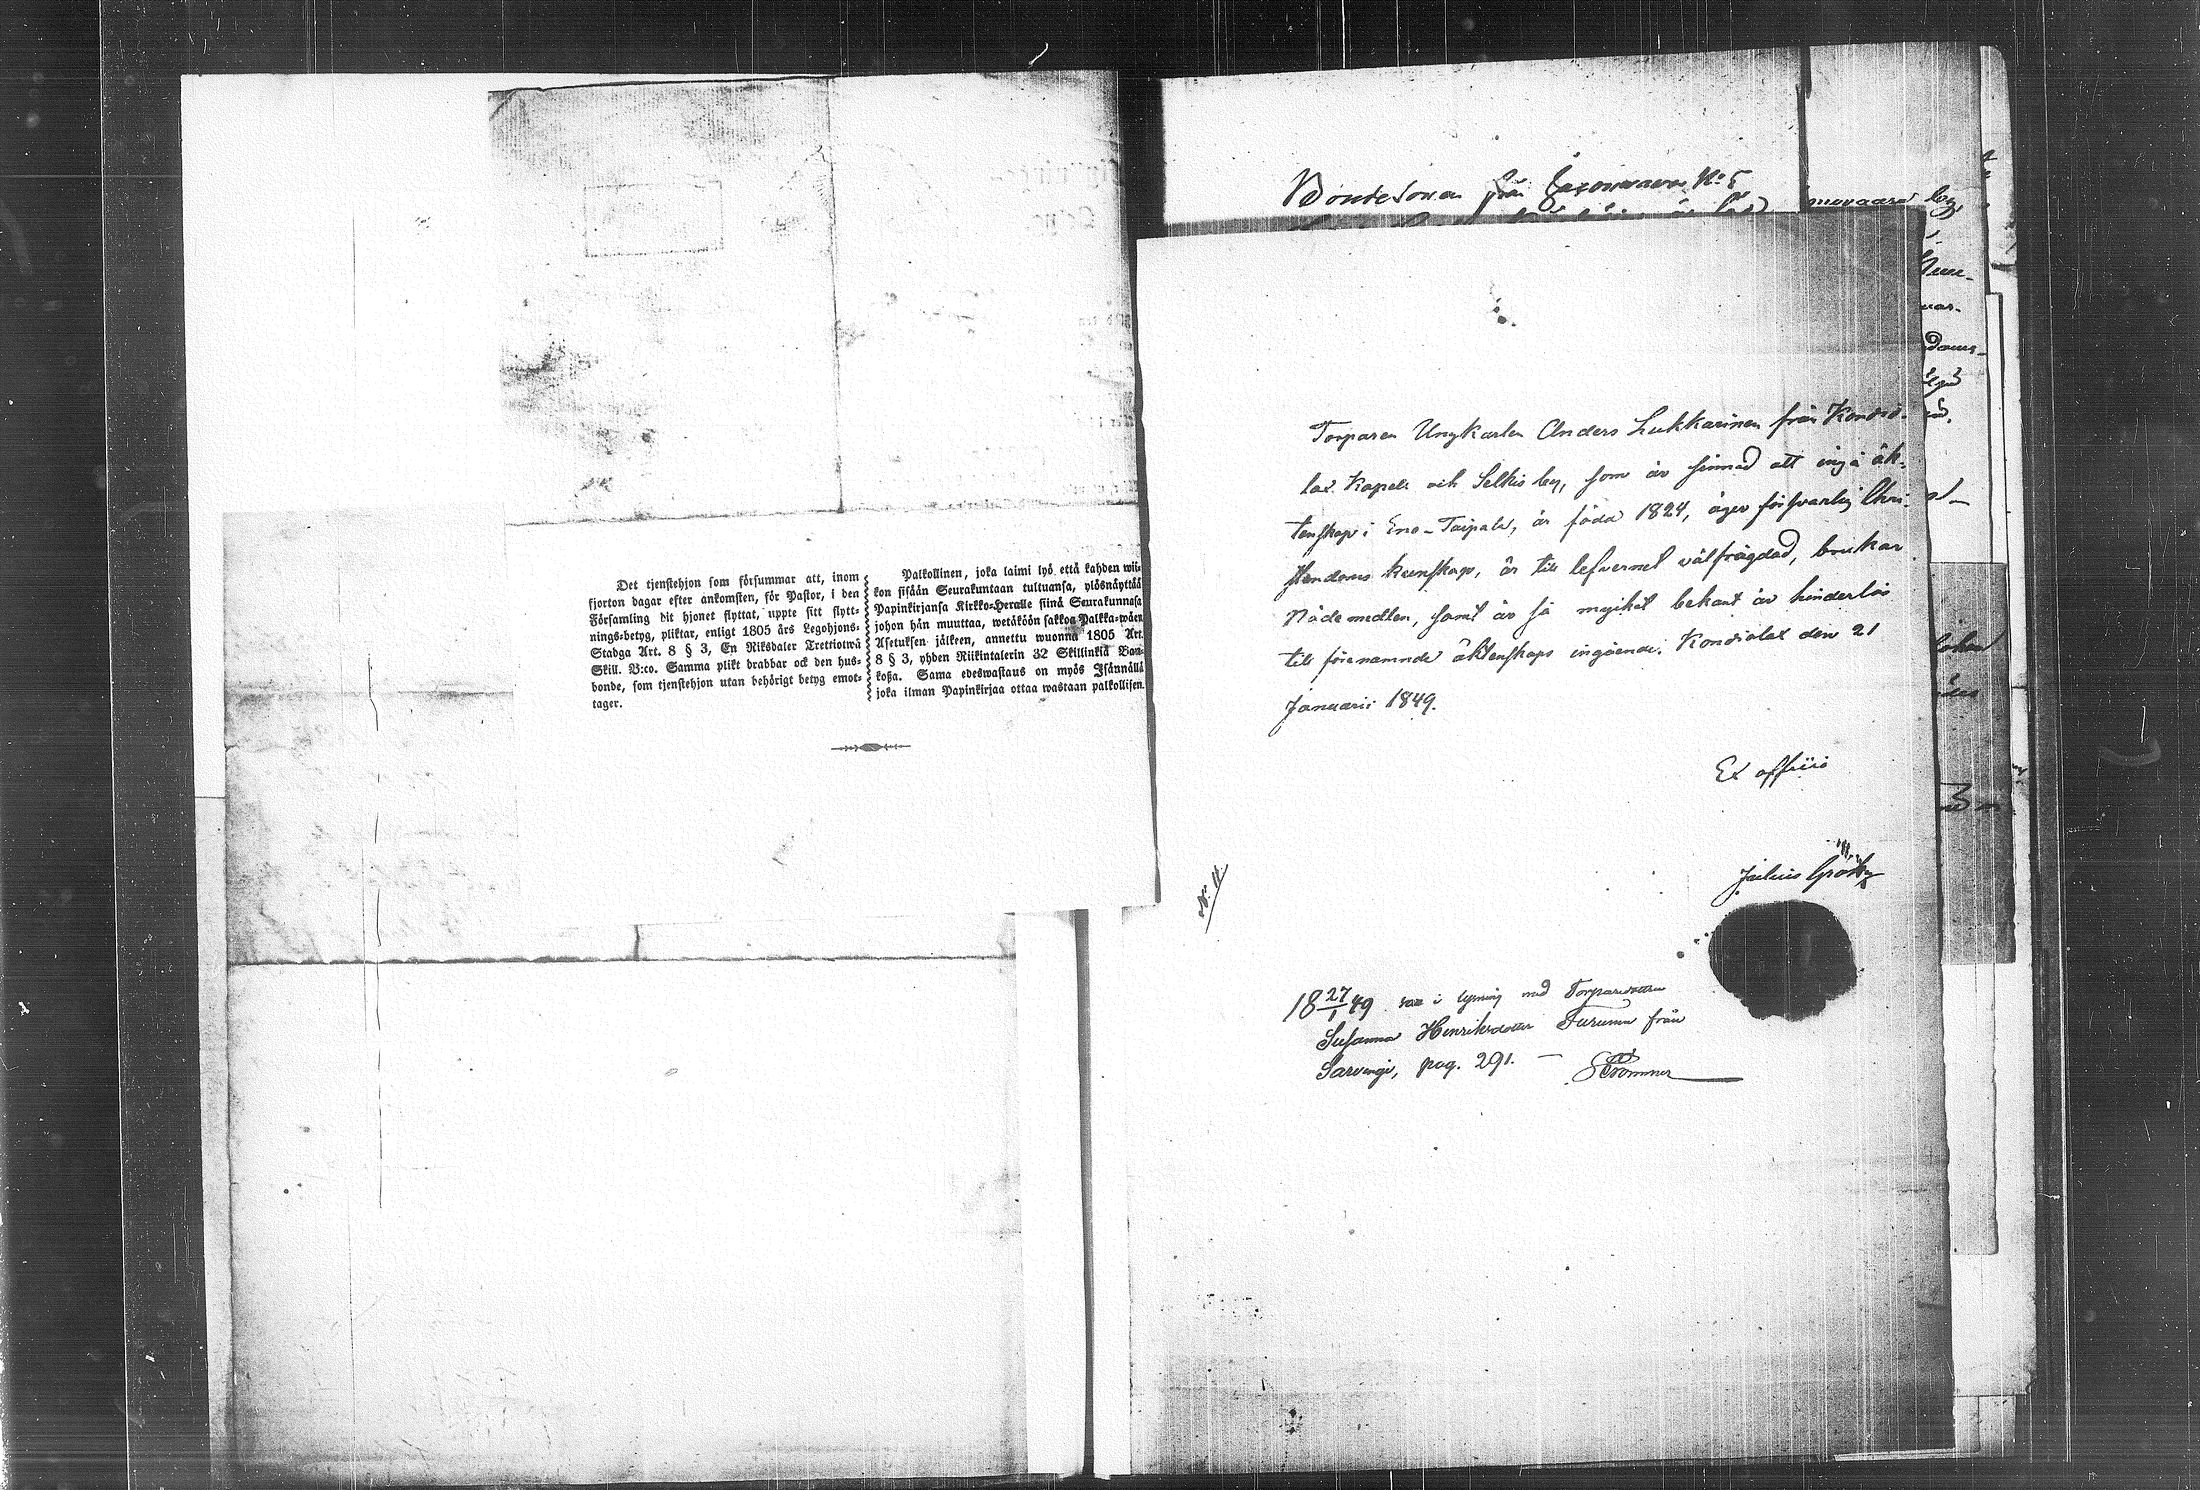 Det tjenstehjon som försummar att, inom
fjorton dagar efter ankomsten, för Pastor, i den
Församling dit hjonet flyttat, uppte sitt flytt-
nings-betyg, pliktar, enligt 1805 års Legohjons-
Stadga Art. 8 § 3, En Riksdaler Trettiotwå
Skill. B:co. Samma plikt drabbar ock den hus-
bonde, som tjenstehjon utan behörigt betyg emot-
tager.
Palkollinen, joka laimi lyö että kahden wii-
kon sisään Seurakuntaan tultuansa, ylösnäyttää
Papinkirjansa Kirkko-Herralle siinä Seurakunnasa
johon hän muuttaa, wetäköön sakkoa Palkka-wäen
Asetuksen jälkeen, annettu wuonna 1805 Art.
8 § 3, yhden Riikintalerin 32 Skillinkiä Ban-
kosa. Sama edeswastaus on myös Isännällä
joka ilman Papinkirjaa ottaa wastaan palkollisen.
Bondesonen från No 5
by
Torparen Ungkarlen Anders Lukkarinen från Kondio-
lax Kapell och Selkis by, som är sinnad att ingå äk-
tenskap i Eno-Taipale, är född 1824, äger försvarlig Chri-
stendoms kunskap, är till lefvernet välfrägdad, brukar
Nådemedlen, samt är så mycket bekant är hinderlös
till förenämnde äktenskaps ingående. Kondiolax den 21
Januarii 1849.
Ex officio
Julius
N: 11.
18 27/1 49 var i lysning med Torparedottren
Susanna Henriksdotter Turunen från
Sarvingi, pag. 291. —